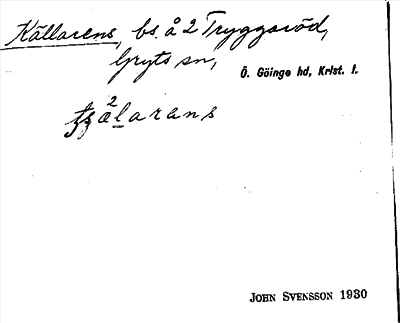 Källarens, bs. å 2 Tryggaröd,
Gryts sn,
Ö. Göinge hd, Krist. l.
²
älarans
JOHN SVENSSON 1930